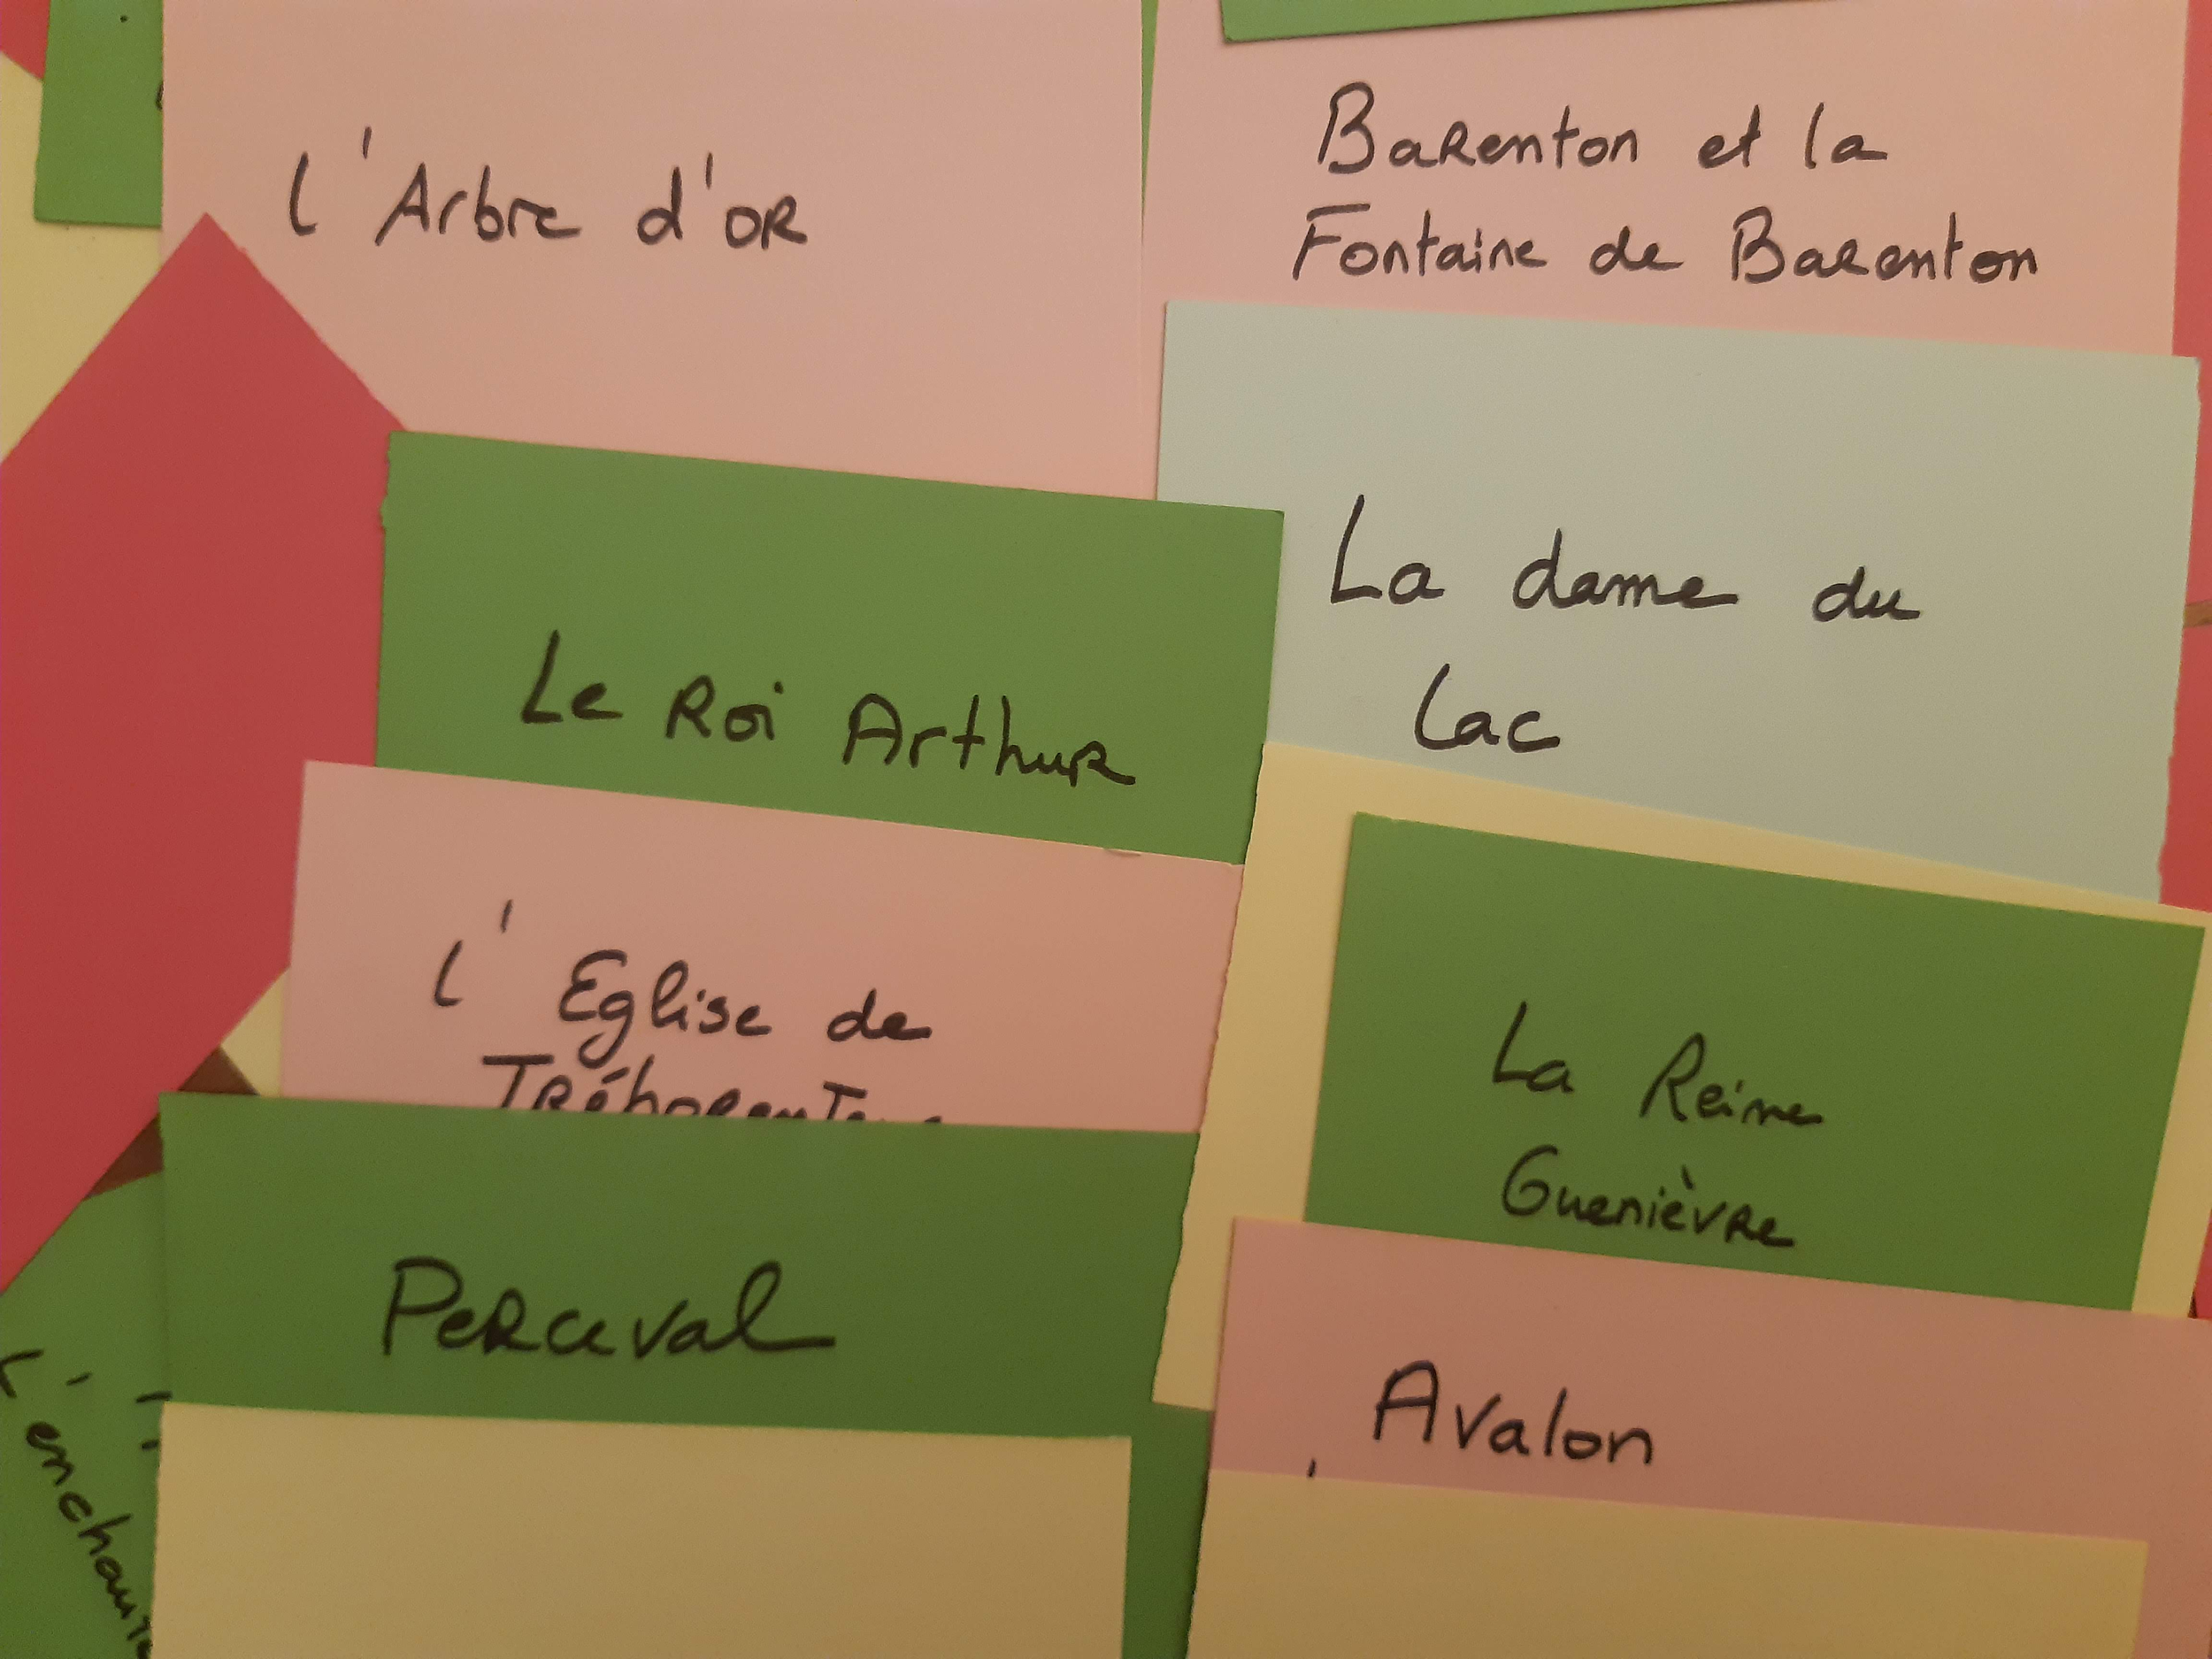 l'Arbre d'OR
Barenton et la
Fontaine de Barenton
La dame du
Lac
Le Roi Arthur
l'Eglise de
Tréhorenteuc
La Reine
Guenièvre
Perceval
Avalon